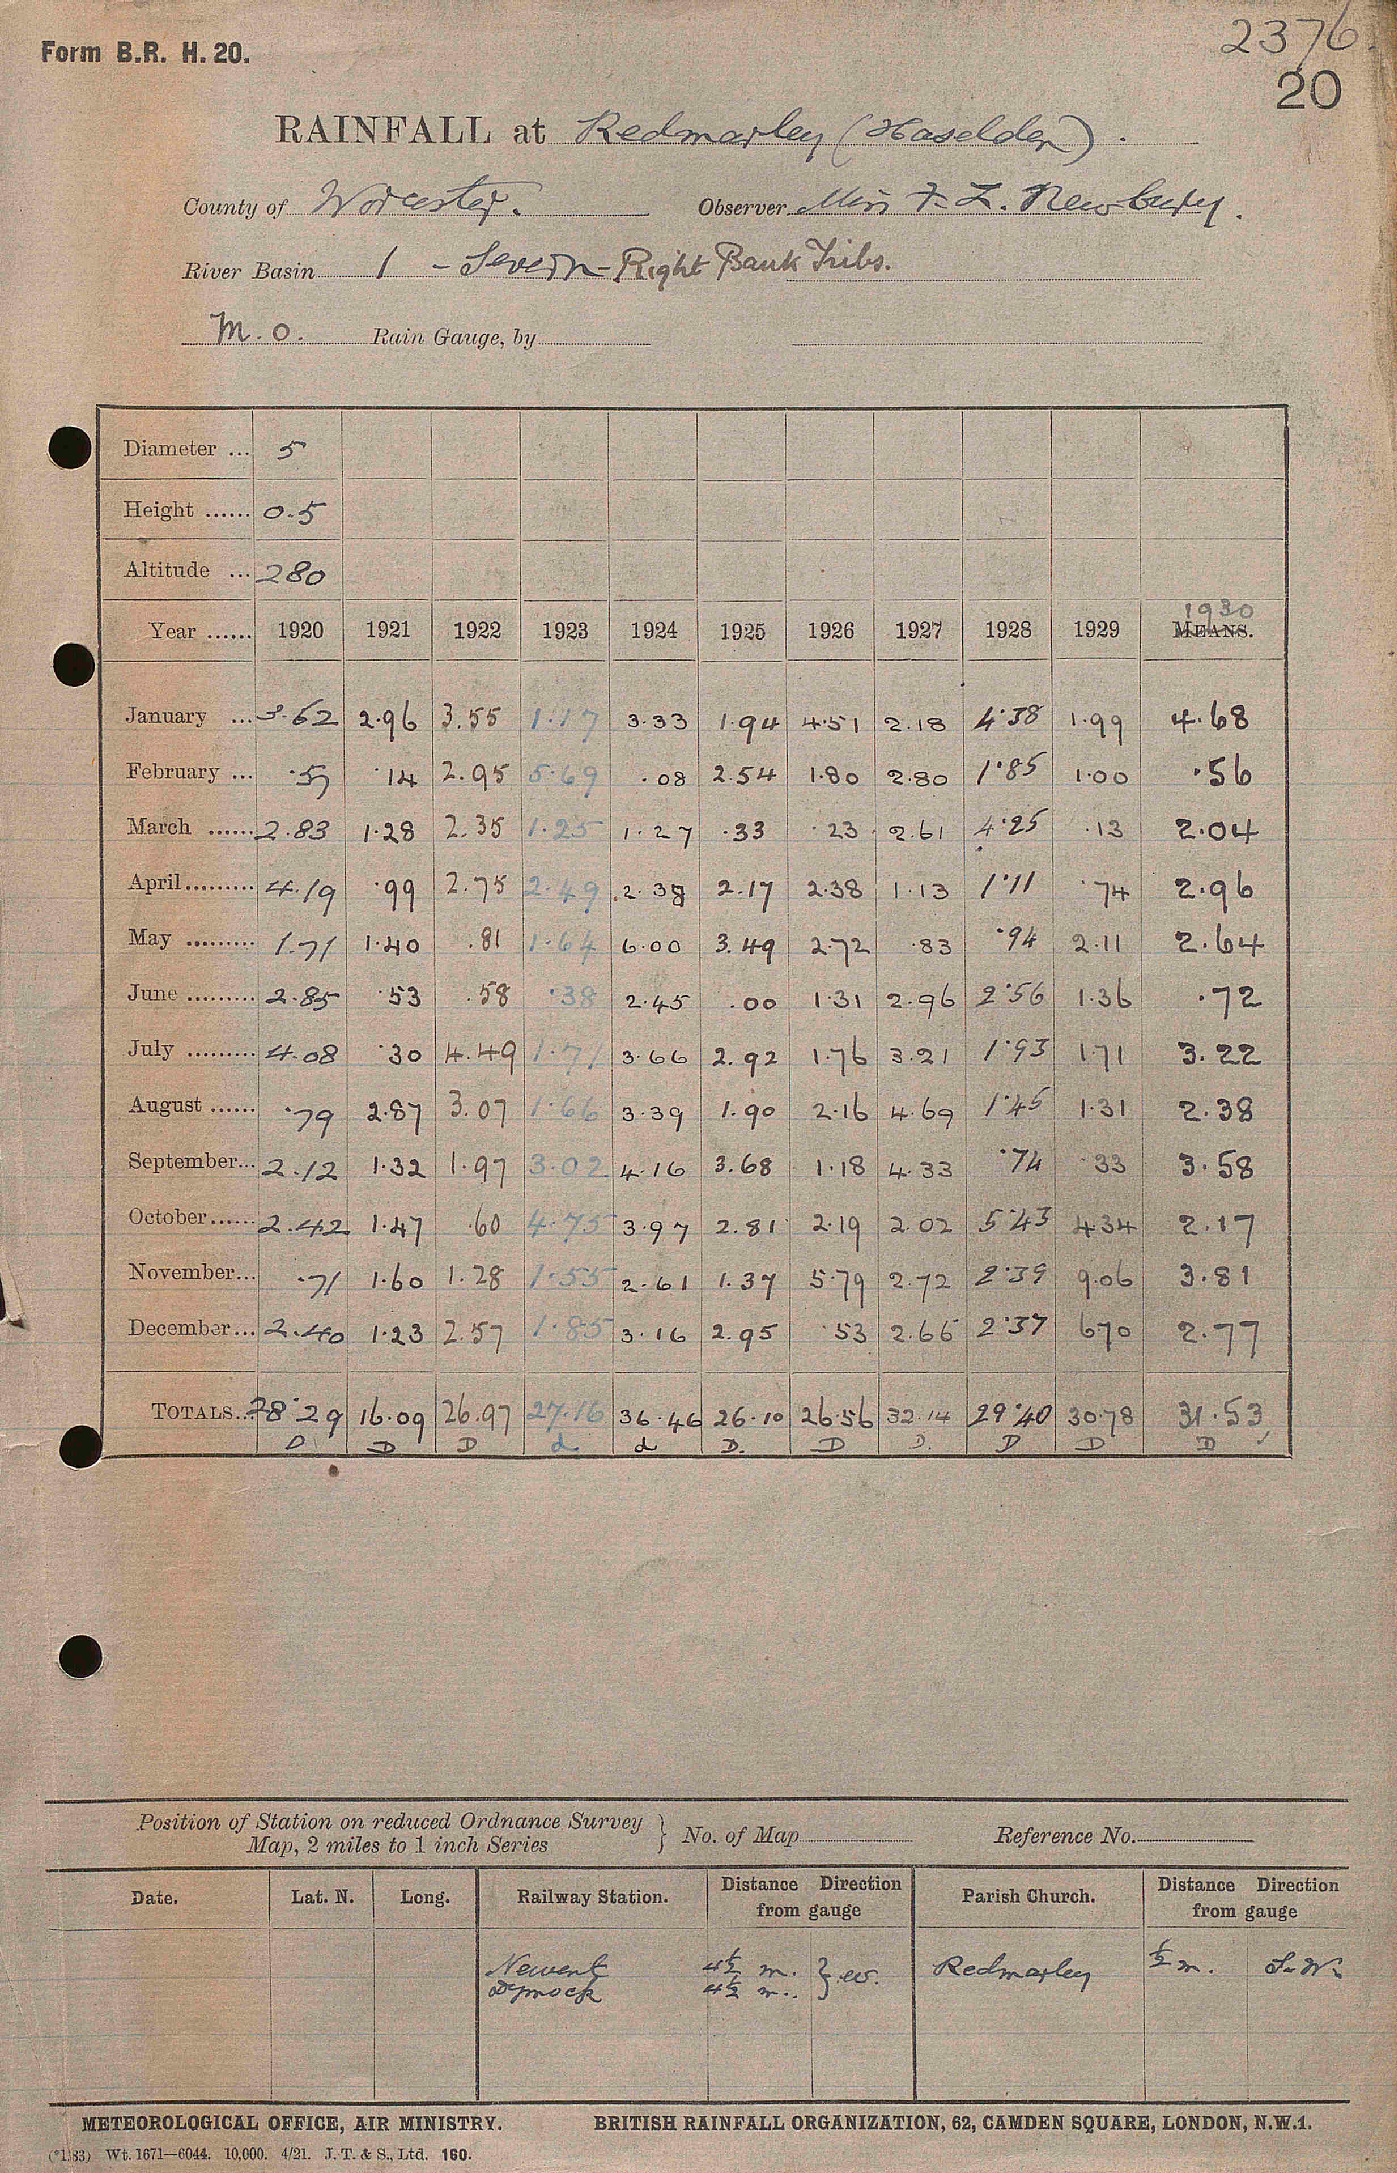 Form B.R. H. 20.
2376.
20
RAINFALL at Redmarley (Haselden).
County of Worcester. Observer Miss F. L. Newbury.
River Basin 1 - Severn - Right Bank Tribs.
M.O. Rain Gauge, by
Diameter ... 5
Height ...... 0.5
Altitude ... 280
1930
Year ...... 1920 1921 1922 1923 1924 1925 1926 1927 1928 1929 MEANS.
January ... 3.62 2.96 3.55 1.17 3.33 1.94 4.51 2.18 4.38 1.99 4.68
February ... .57 .14 2.95 5.69 .08 2.54 1.80 2.80 1.85 1.00 .56
March ...... 2.83 1.28 2.35 1.25 1.27 .33 .23 2.61 4.25 .13 2.04
April ......... 4.19 .99 2.75 2.49 2.38 2.17 2.38 1.13 1.11 .74 2.96
May ......... 1.71 1.40 .81 1.64 6.00 3.49 2.72 .83 .94 2.11 2.64
June ......... 2.85 .53 .58 .38 2.45 .00 1.31 2.96 2.56 1.36 .72
July ......... 4.08 .30 4.49 1.71 3.66 2.92 1.76 3.21 1.93 1.71 3.22
August ...... .79 2.87 3.07 1.66 3.39 1.90 2.16 4.69 1.45 1.31 2.38
September... 2.12 1.32 1.97 3.02 4.16 3.68 1.18 4.33 .74 .33 3.58
October...... 2.42 1.47 .60 4.75 3.97 2.81 2.19 2.02 5.43 4.34 2.17
November... .71 1.60 1.28 1.55 2.61 1.37 5.79 2.72 2.39 9.06 3.81
December... 2.40 1.23 2.57 1.85 3.16 2.95 .53 2.66 2.37 6.70 2.77
TOTALS... 28.29 16.09 26.97 27.16 36.46 26.10 26.56 32.14 29.40 30.78 31.53
D D D d d D. D D. D D D
Position of Station on reduced Ordnance Survey
Map, 2 miles to 1 inch Series } No. of Map Reference No.
Date. Lat. N. Long. Railway Station. Distance Direction from gauge Parish Church. Distance Direction from gauge
Newent 4½ m. } W. Redmarley ½ m. S.W.
Dymock 4½ m.
METEOROLOGICAL OFFICE, AIR MINISTRY. BRITISH RAINFALL ORGANIZATION, 62, CAMDEN SQUARE, LONDON, N.W.1.
(*1583) Wt. 1671—6044. 10,000. 4/21. J. T. & S., Ltd. 160.